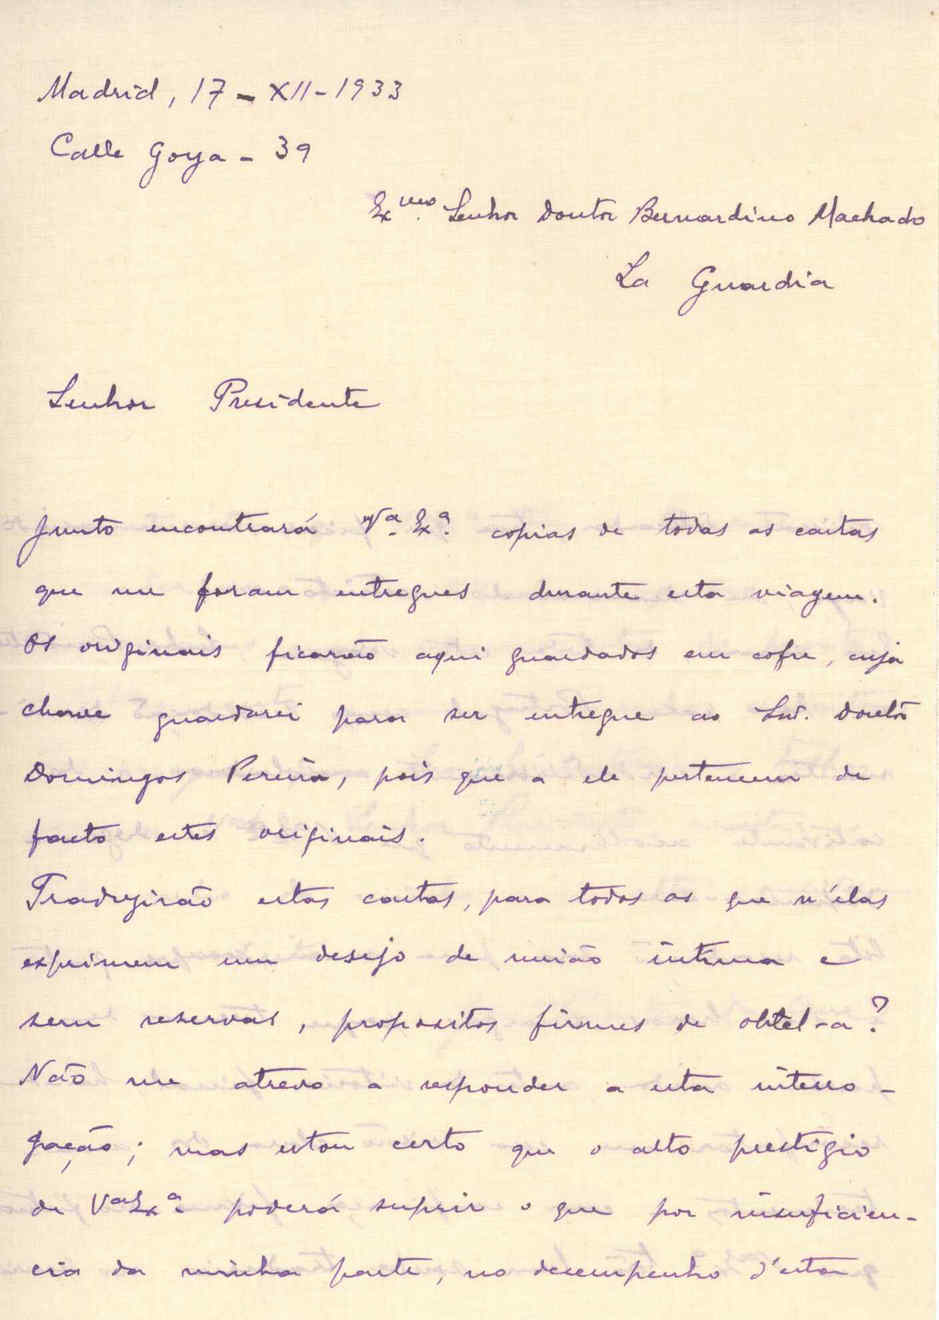 Madrid, 17 - XII - 1933
Calle Goya - 39
Exmo. Senhor Doutor Bernardino Machado
La Guardia
Senhor Presidente
Junto encontrará Va. Exa. copias de todas as cartas
que me foram entregues durante esta viagem.
Os originais ficarão aqui guardados em cofre, cuja
chave guardarei para ser entregue ao Snr. Doutor
Domingos Pereira, pois que a ele pertencem de
facto estes originais.
Traduzirão estas cartas, para todos os que n'elas
exprimem um desejo de união intima e
sem reservas, propositos firmes de obtel-a?
Não me atrevo a responder a esta interro-
gação; mas estou certo que o alto prestigio
de Va Exa. poderá suprir o que por insuficien-
cia da minha parte, no desempenho d'esta